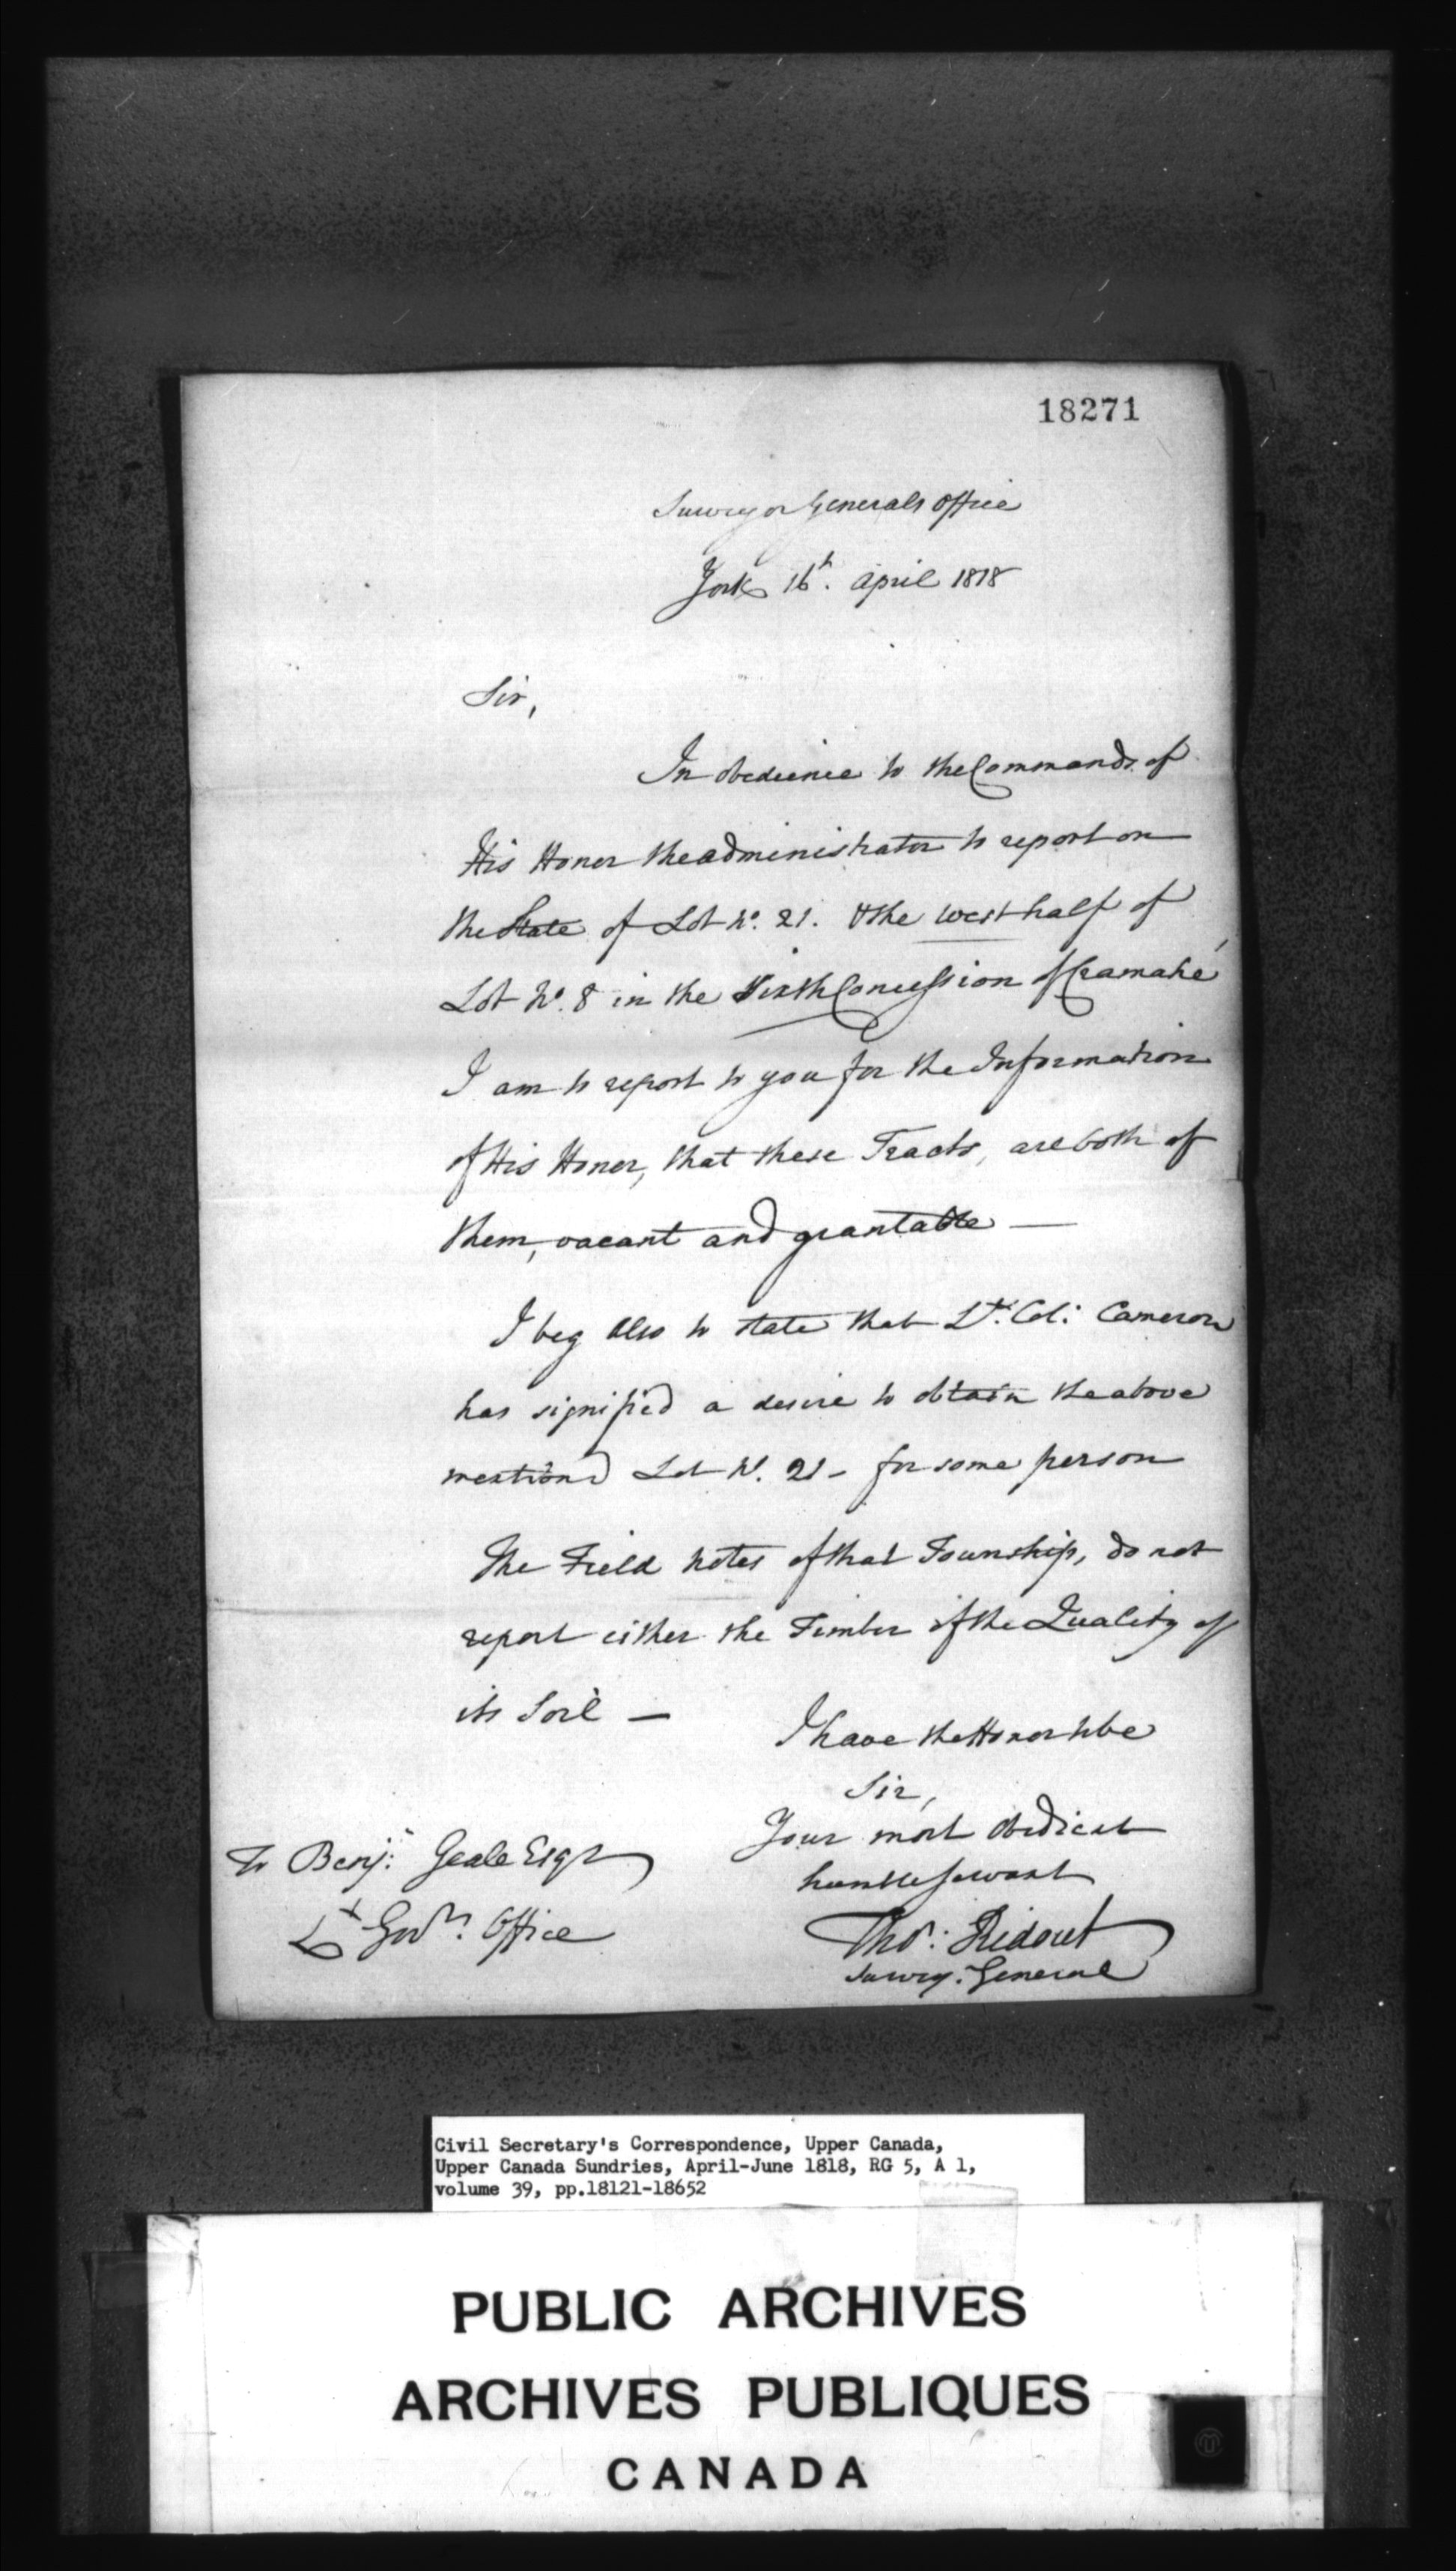 18271
Surveyor Generals Office
York 16th. April 1818
Sir,
In obedience to the Commands of
His Honor the administrator to report on
the State of Lot No. 21. & the west half of
Lot No. 8 in the Sixth Concession of Cramahé
I am to report to you for the Information
of His Honor, that these Tracts, are both of
them, vacant and grantable —
I beg also to state that Lt. Col: Cameron
has signified a desire to obtain the above
mentiond Lot No. 21 - for some person
The Field notes of that Township, do not
report either the Timber of the Quality of
its Soil —
I have the Honor to be
Sir,
Your most obedient
humble Servant
Thos: Ridout
Survey. General
To Benjn: Geale Esqr
Lt Govrs. Office
Civil Secretary's Correspondence, Upper Canada,
Upper Canada Sundries, April-June 1818, RG 5, A 1,
volume 39, pp.18121-18652
PUBLIC ARCHIVES
ARCHIVES PUBLIQUES
CANADA